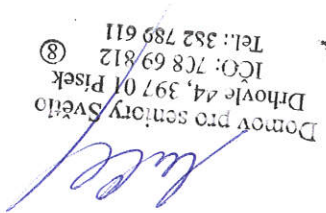 Domov pro seniory Světlo
Drhovle 44, 397 01 Písek
IČO: 708 69 812
Tel.: 382 789 611
8